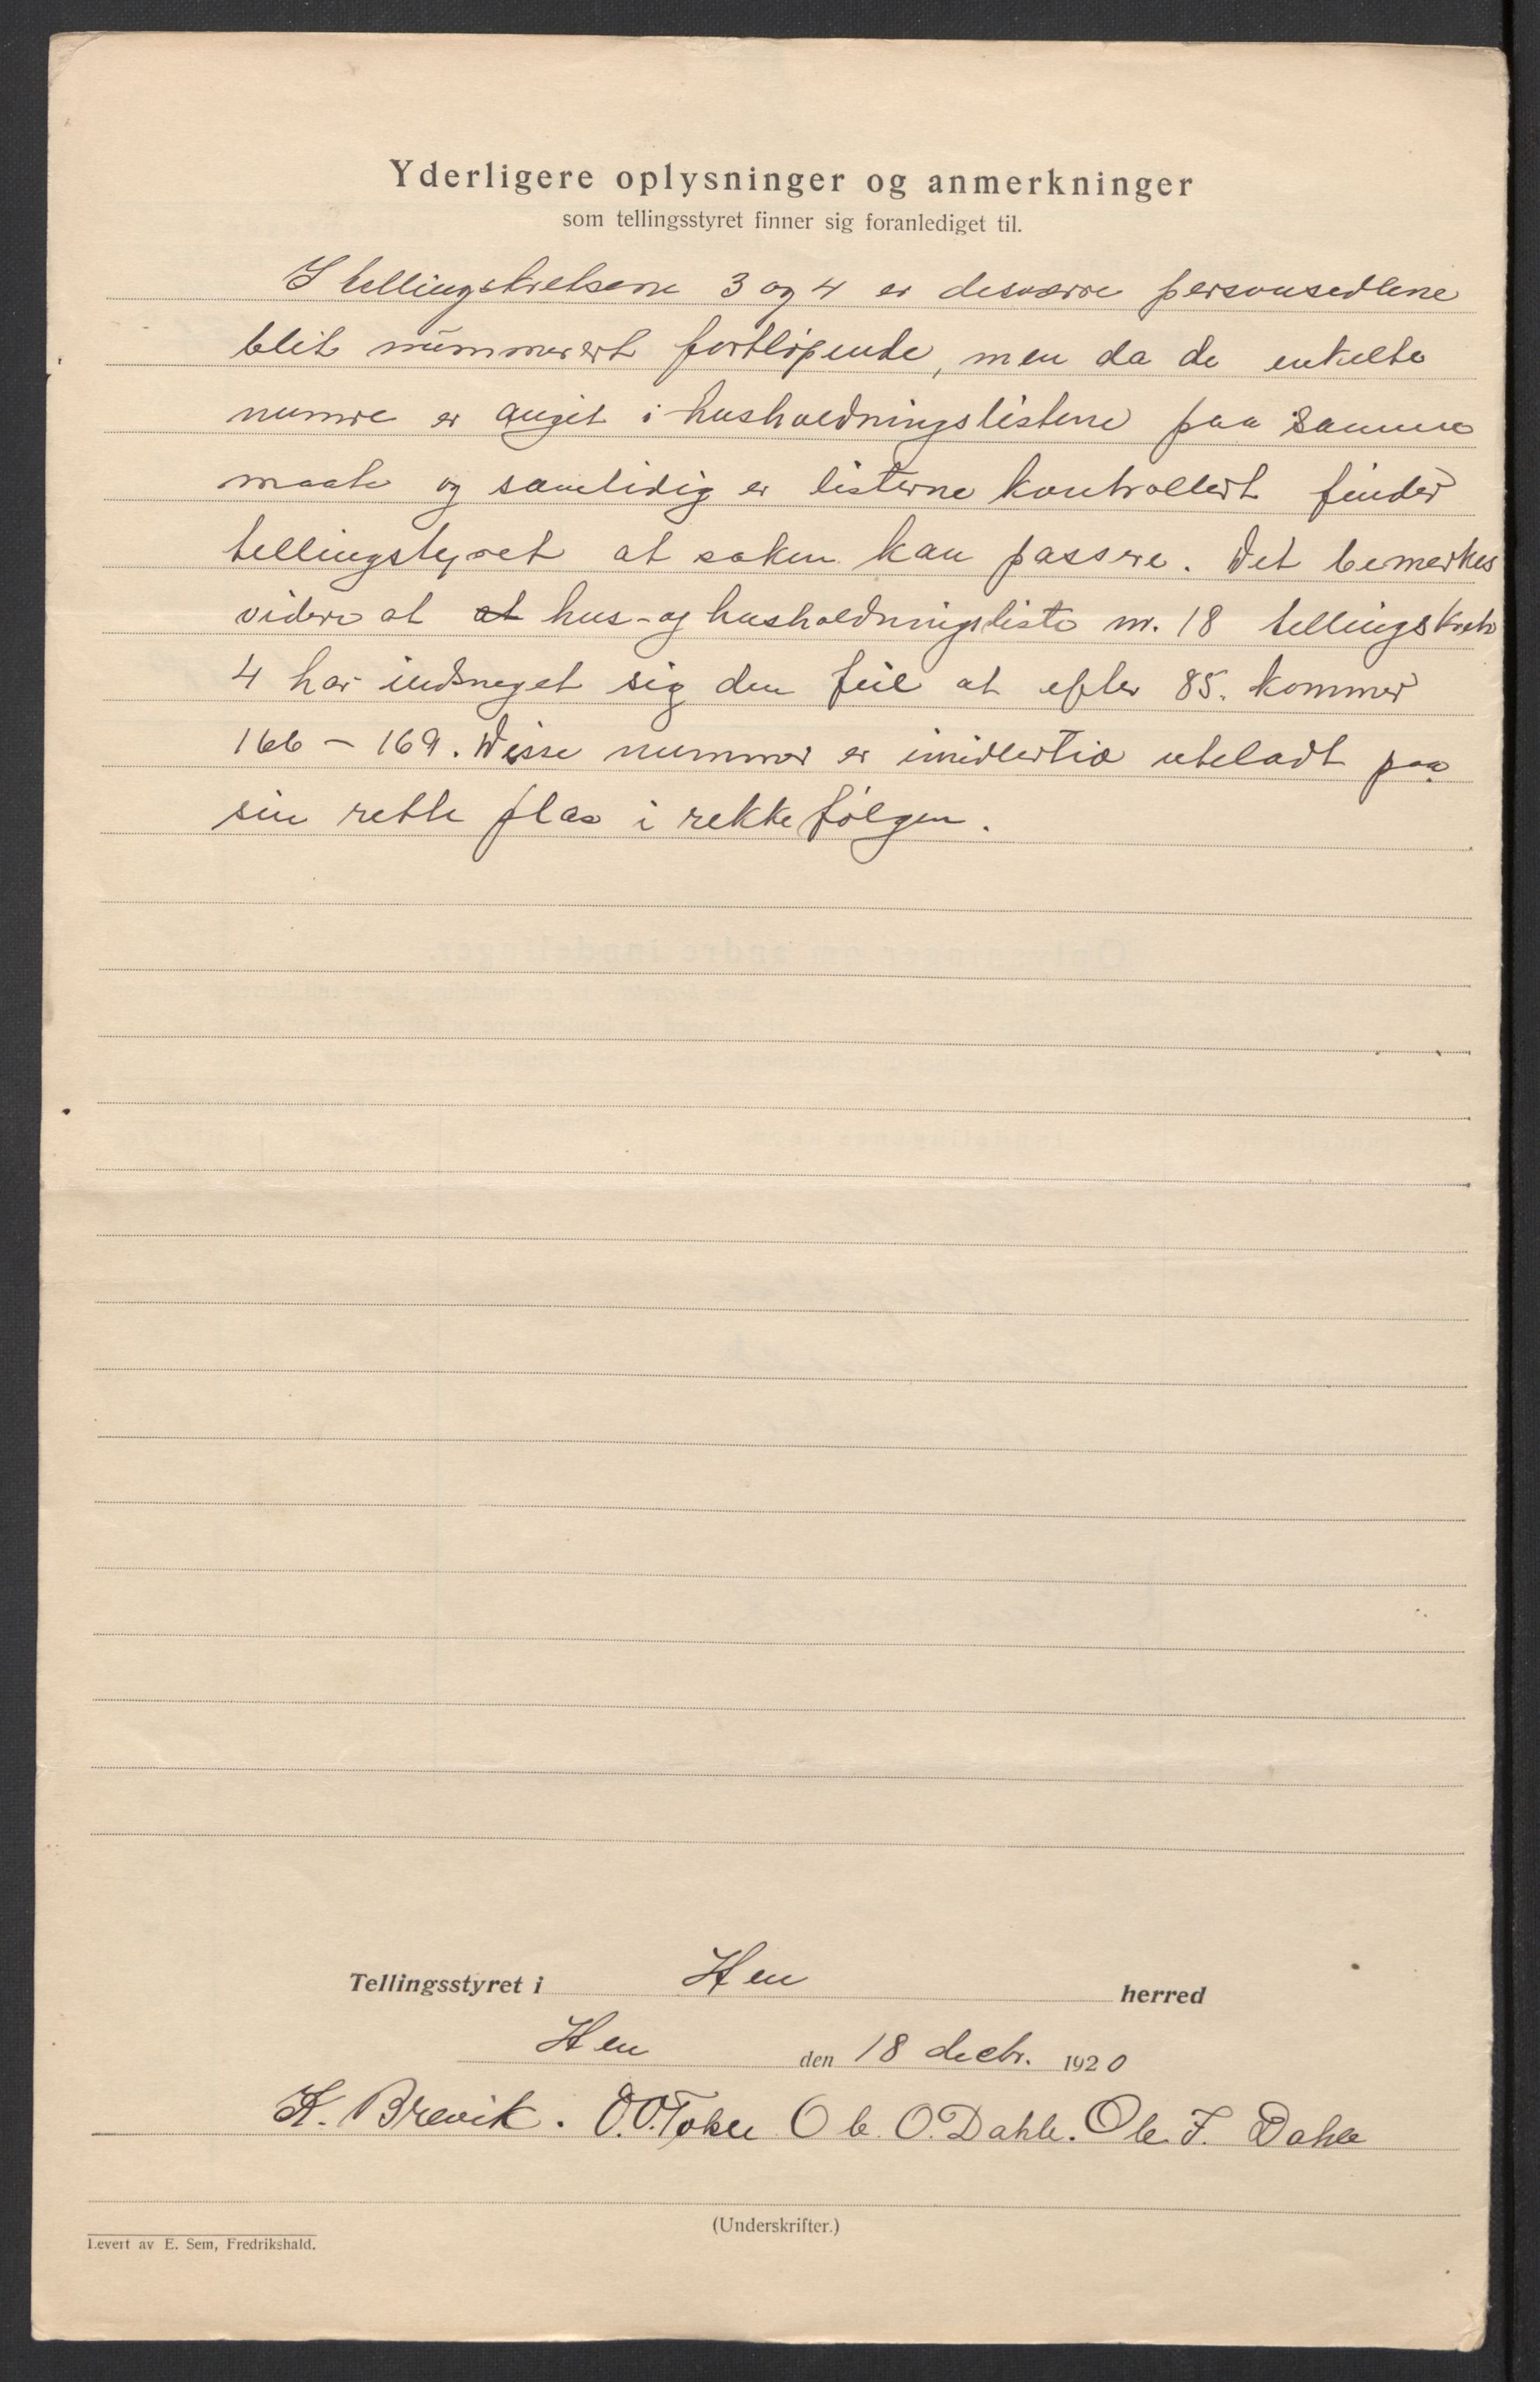 Yderligere oplysninger og anmerkninger
som tellingsstyret finner sig foranlediget til.
I tellingskretsene 3 og 4 er desværre personsedlene
blit nummerert fortløpende, men da de enkelte
numre er angit i husholdningslistene paa samme
maate og samtidig er listerne kontrollert finder
tellingstyret at saken kan passere. Det bemerkes
videre at at hus- og husholdningsliste nr. 18 tellingskrets
4 har indsneget sig den feil at efter 85. kommer
166 - 169. Disse nummer er imidlertid uteladt paa
sin rette plas i rekkefølgen.
Tellingsstyret i Hen herred
Hen den 18 decbr. 1920
K. Brevik. O.O. Tokle Ole O. Dahle. Ole J. Dahle
(Underskrifter.)
Levert av E. Sem, Fredrikshald.